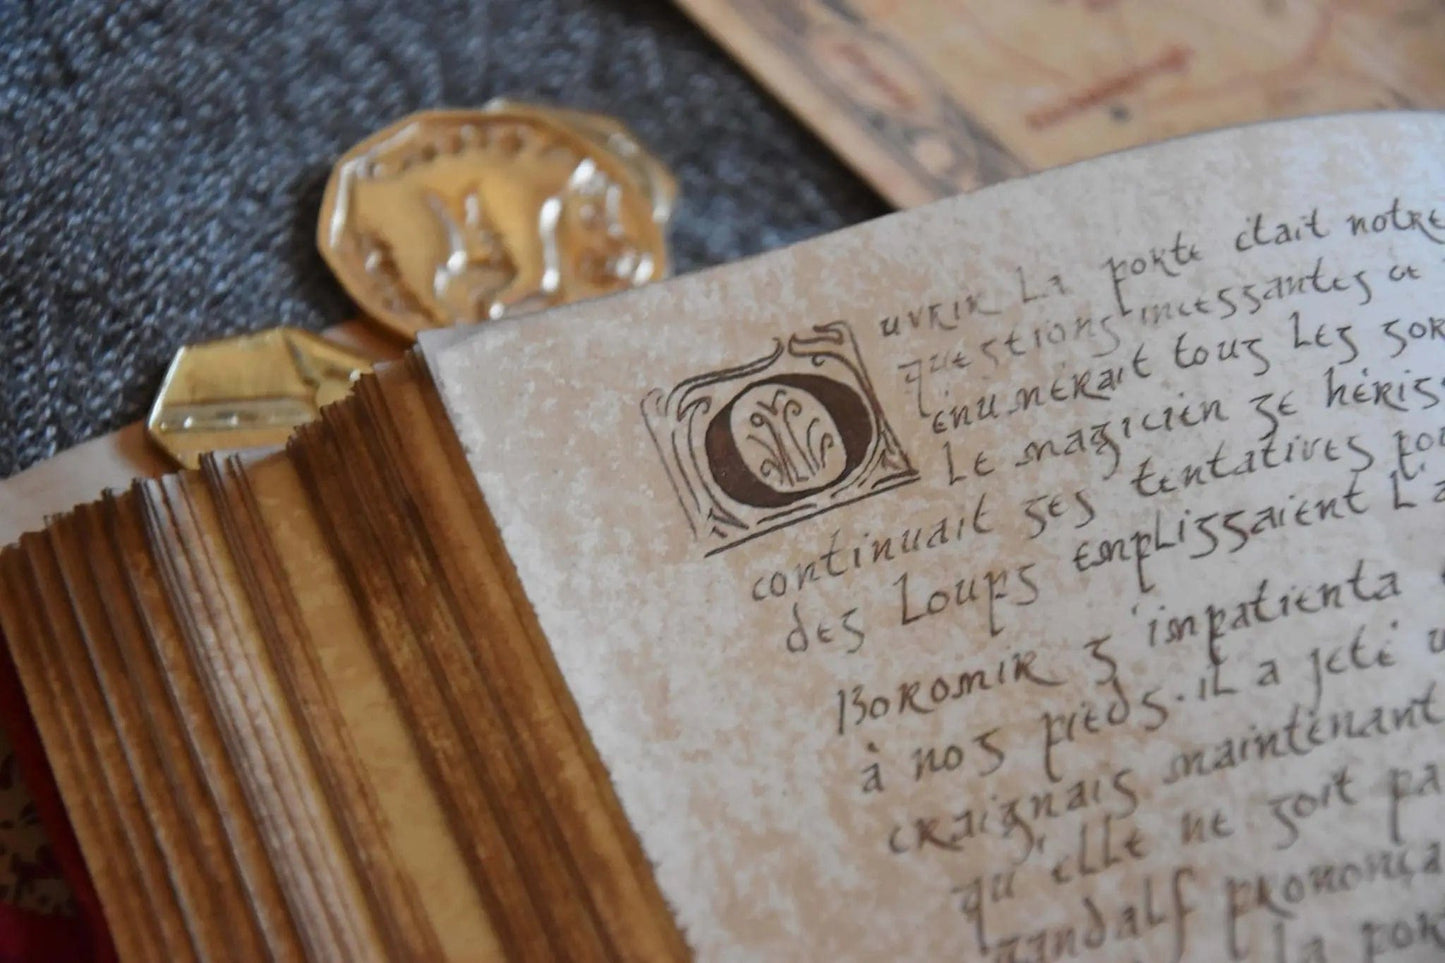 Ouvrir la porte était notre
questions incessantes et
énumérait tous les sor
le magicien se hériss
continuait ses tentatives
des loups emplissaient l'a
Boromir s'impatienta
à nos pieds. il a jeté u
craignais maintenant
qu'elle ne soit pa
gandalf prononça
la por